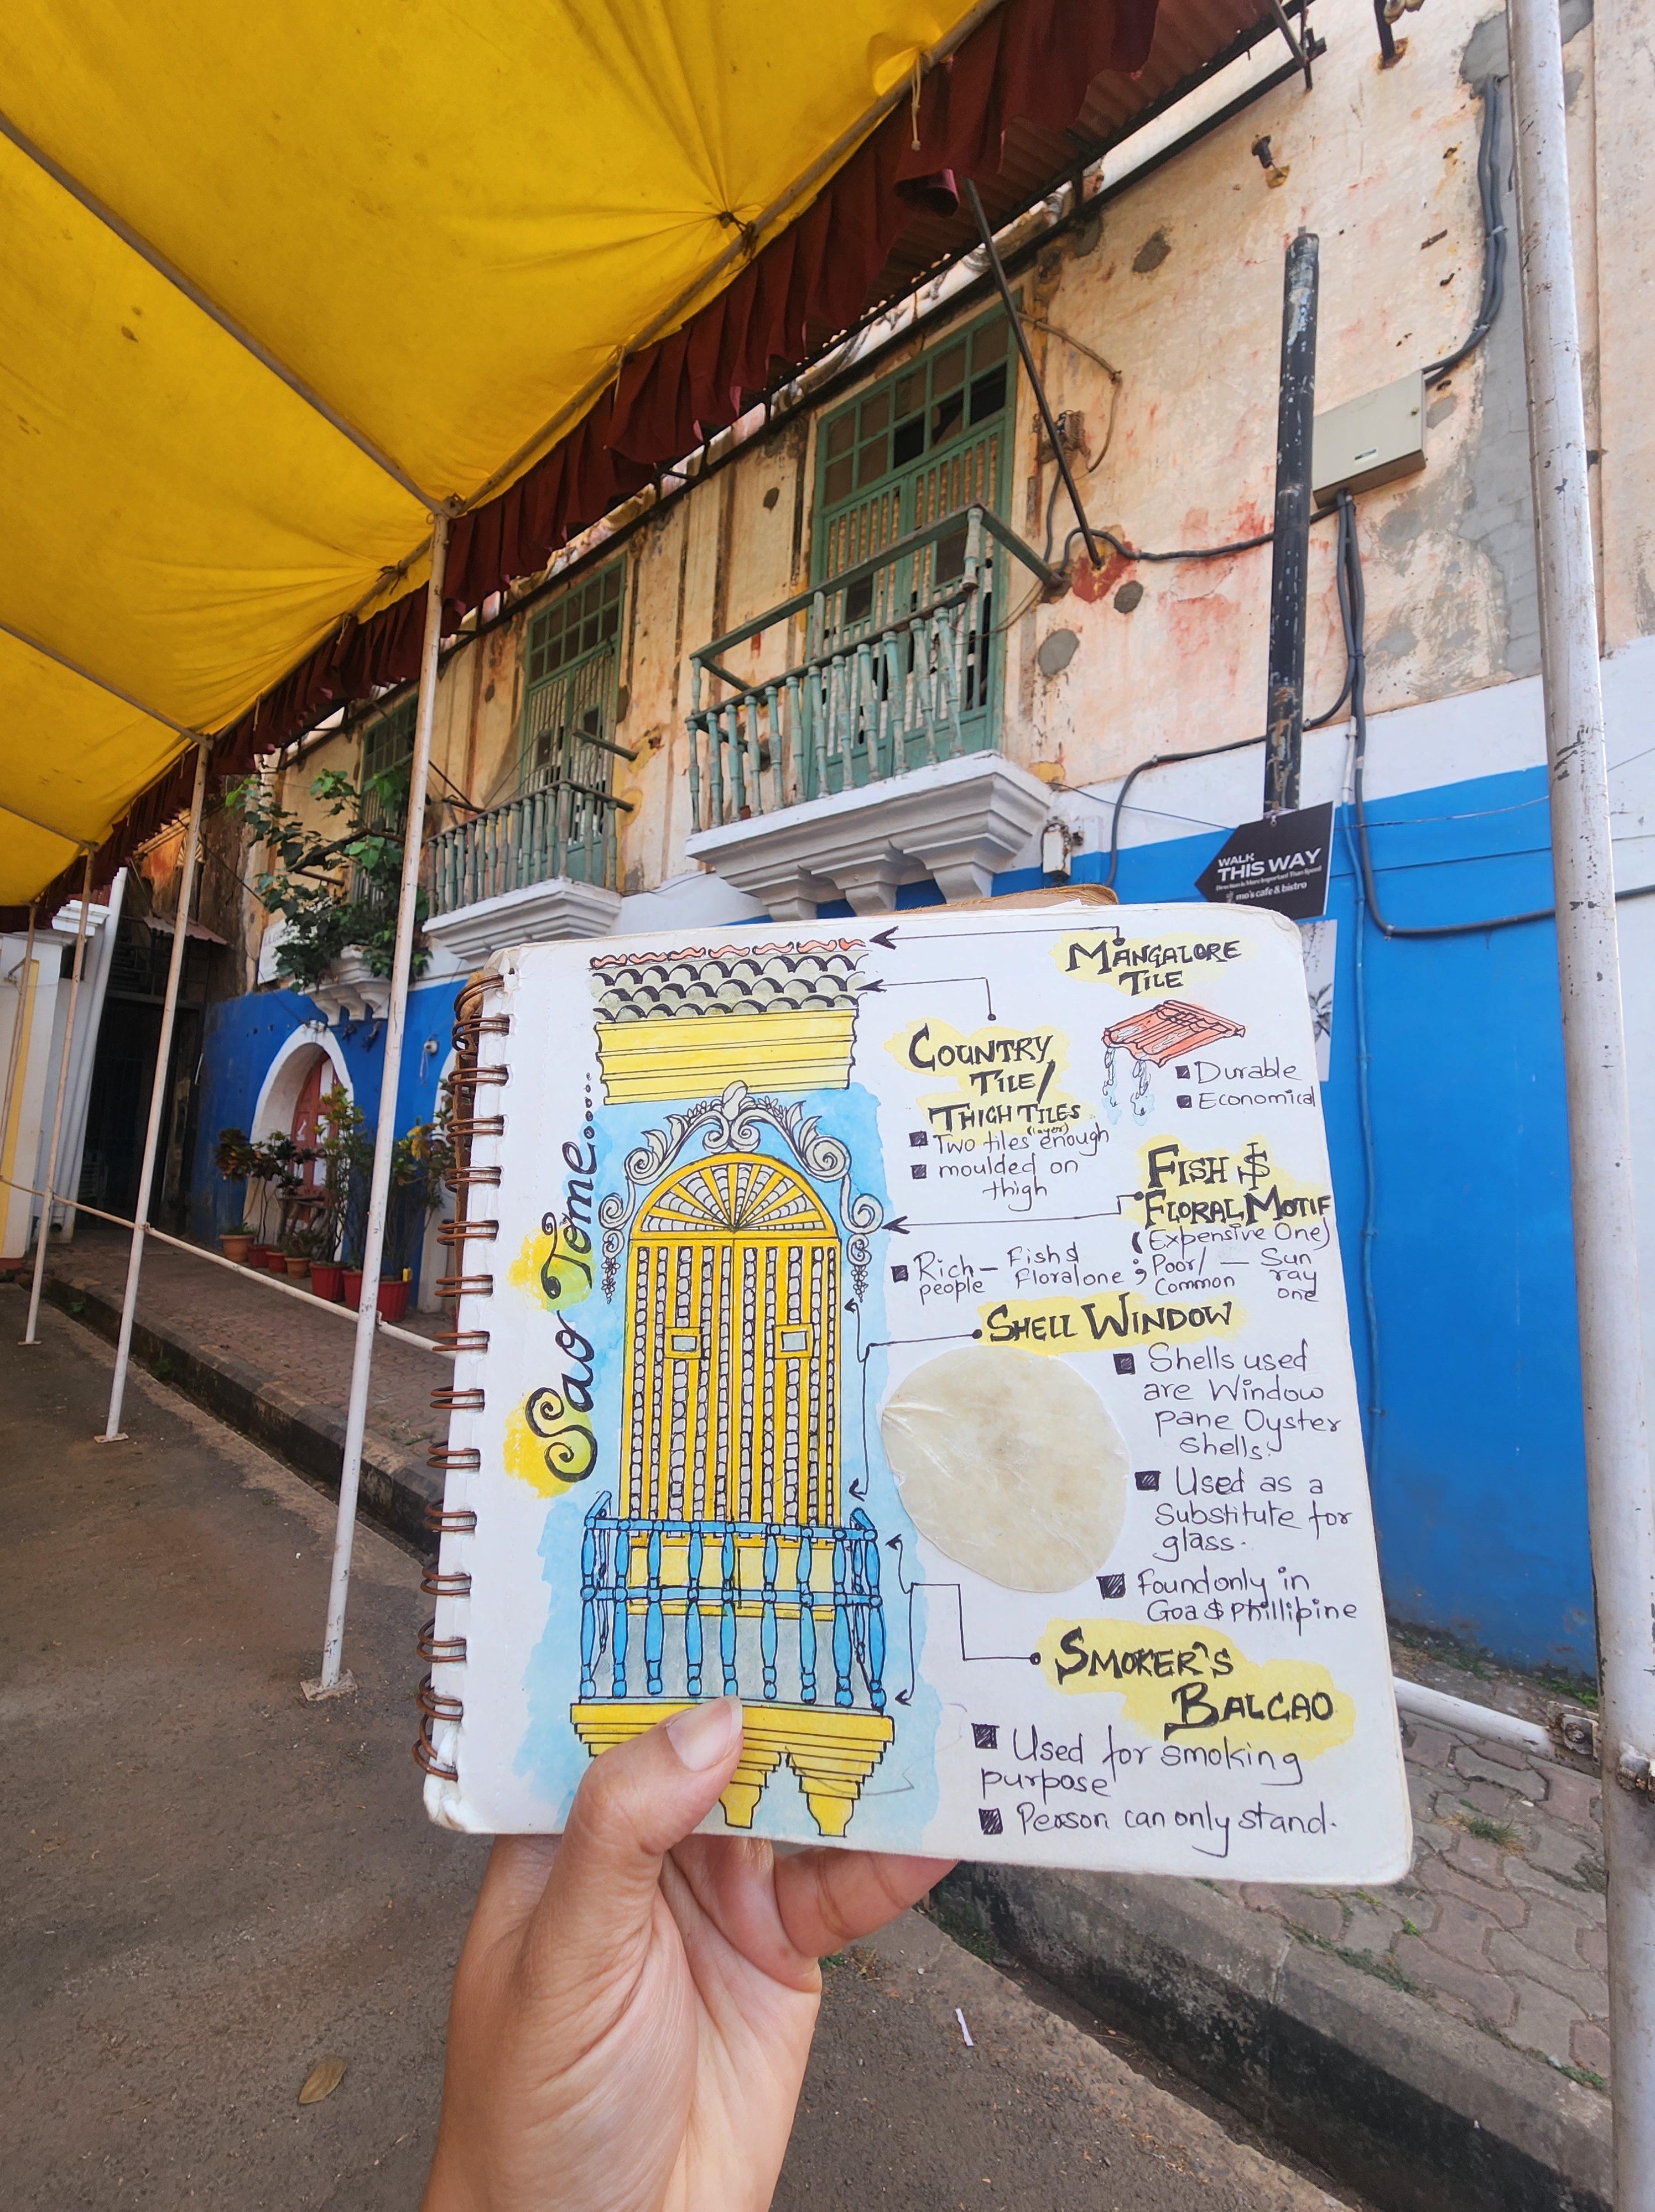 WALK
THIS WAY
Direction is More Important Than Speed
mo's cafe & bistro
Sao Tome.....
MANGALORE
TILE
Durable
Economical
COUNTRY
TILE/
THIGH TILES
Two tiles (layer) enough
moulded on
thigh
FISH $
FLORAL MOTIF
(Expensive One)
Rich people — Fish & Floral one ; Poor/ Common — Sun ray one
SHELL WINDOW
Shells used
are Window
pane Oyster
Shells.
Used as a
Substitute for
glass.
Found only in
Goa $ Phillipine
SMOKER'S
BALCAO
Used for smoking
purpose
Person can only stand.